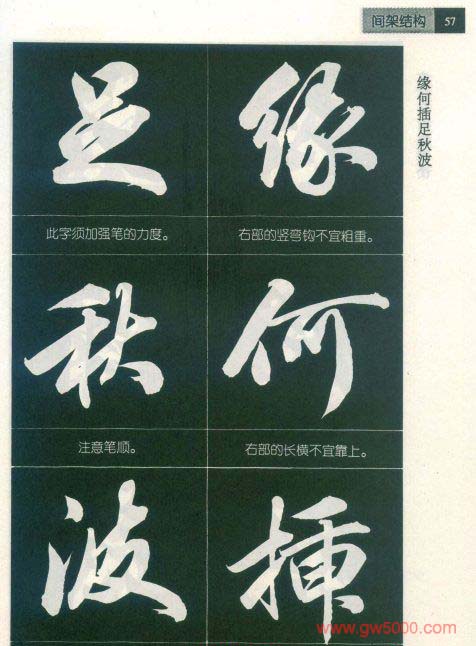 间架结构 57
缘何插足秋波
足 缘
此字须加强笔的力度。 右部的竖弯钩不宜粗重。
秋 何
注意笔顺。 右部的长横不宜靠上。
波 插
www.gw5000.com